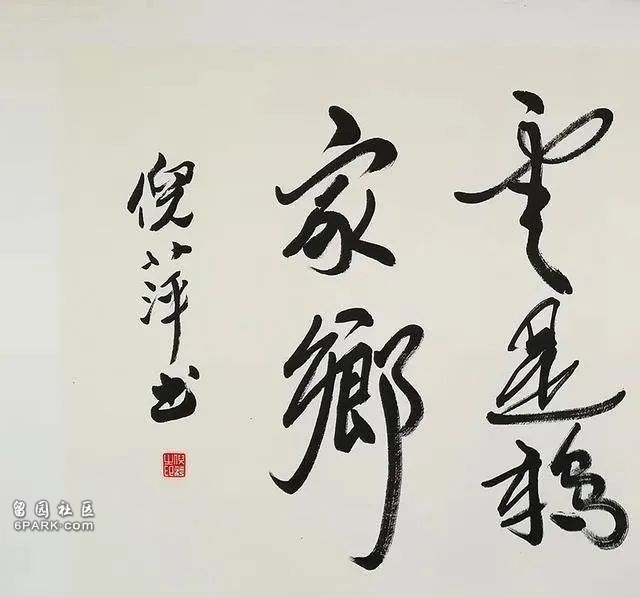 雲是鶴
家鄉
倪萍书
留园社区
6PARK.com